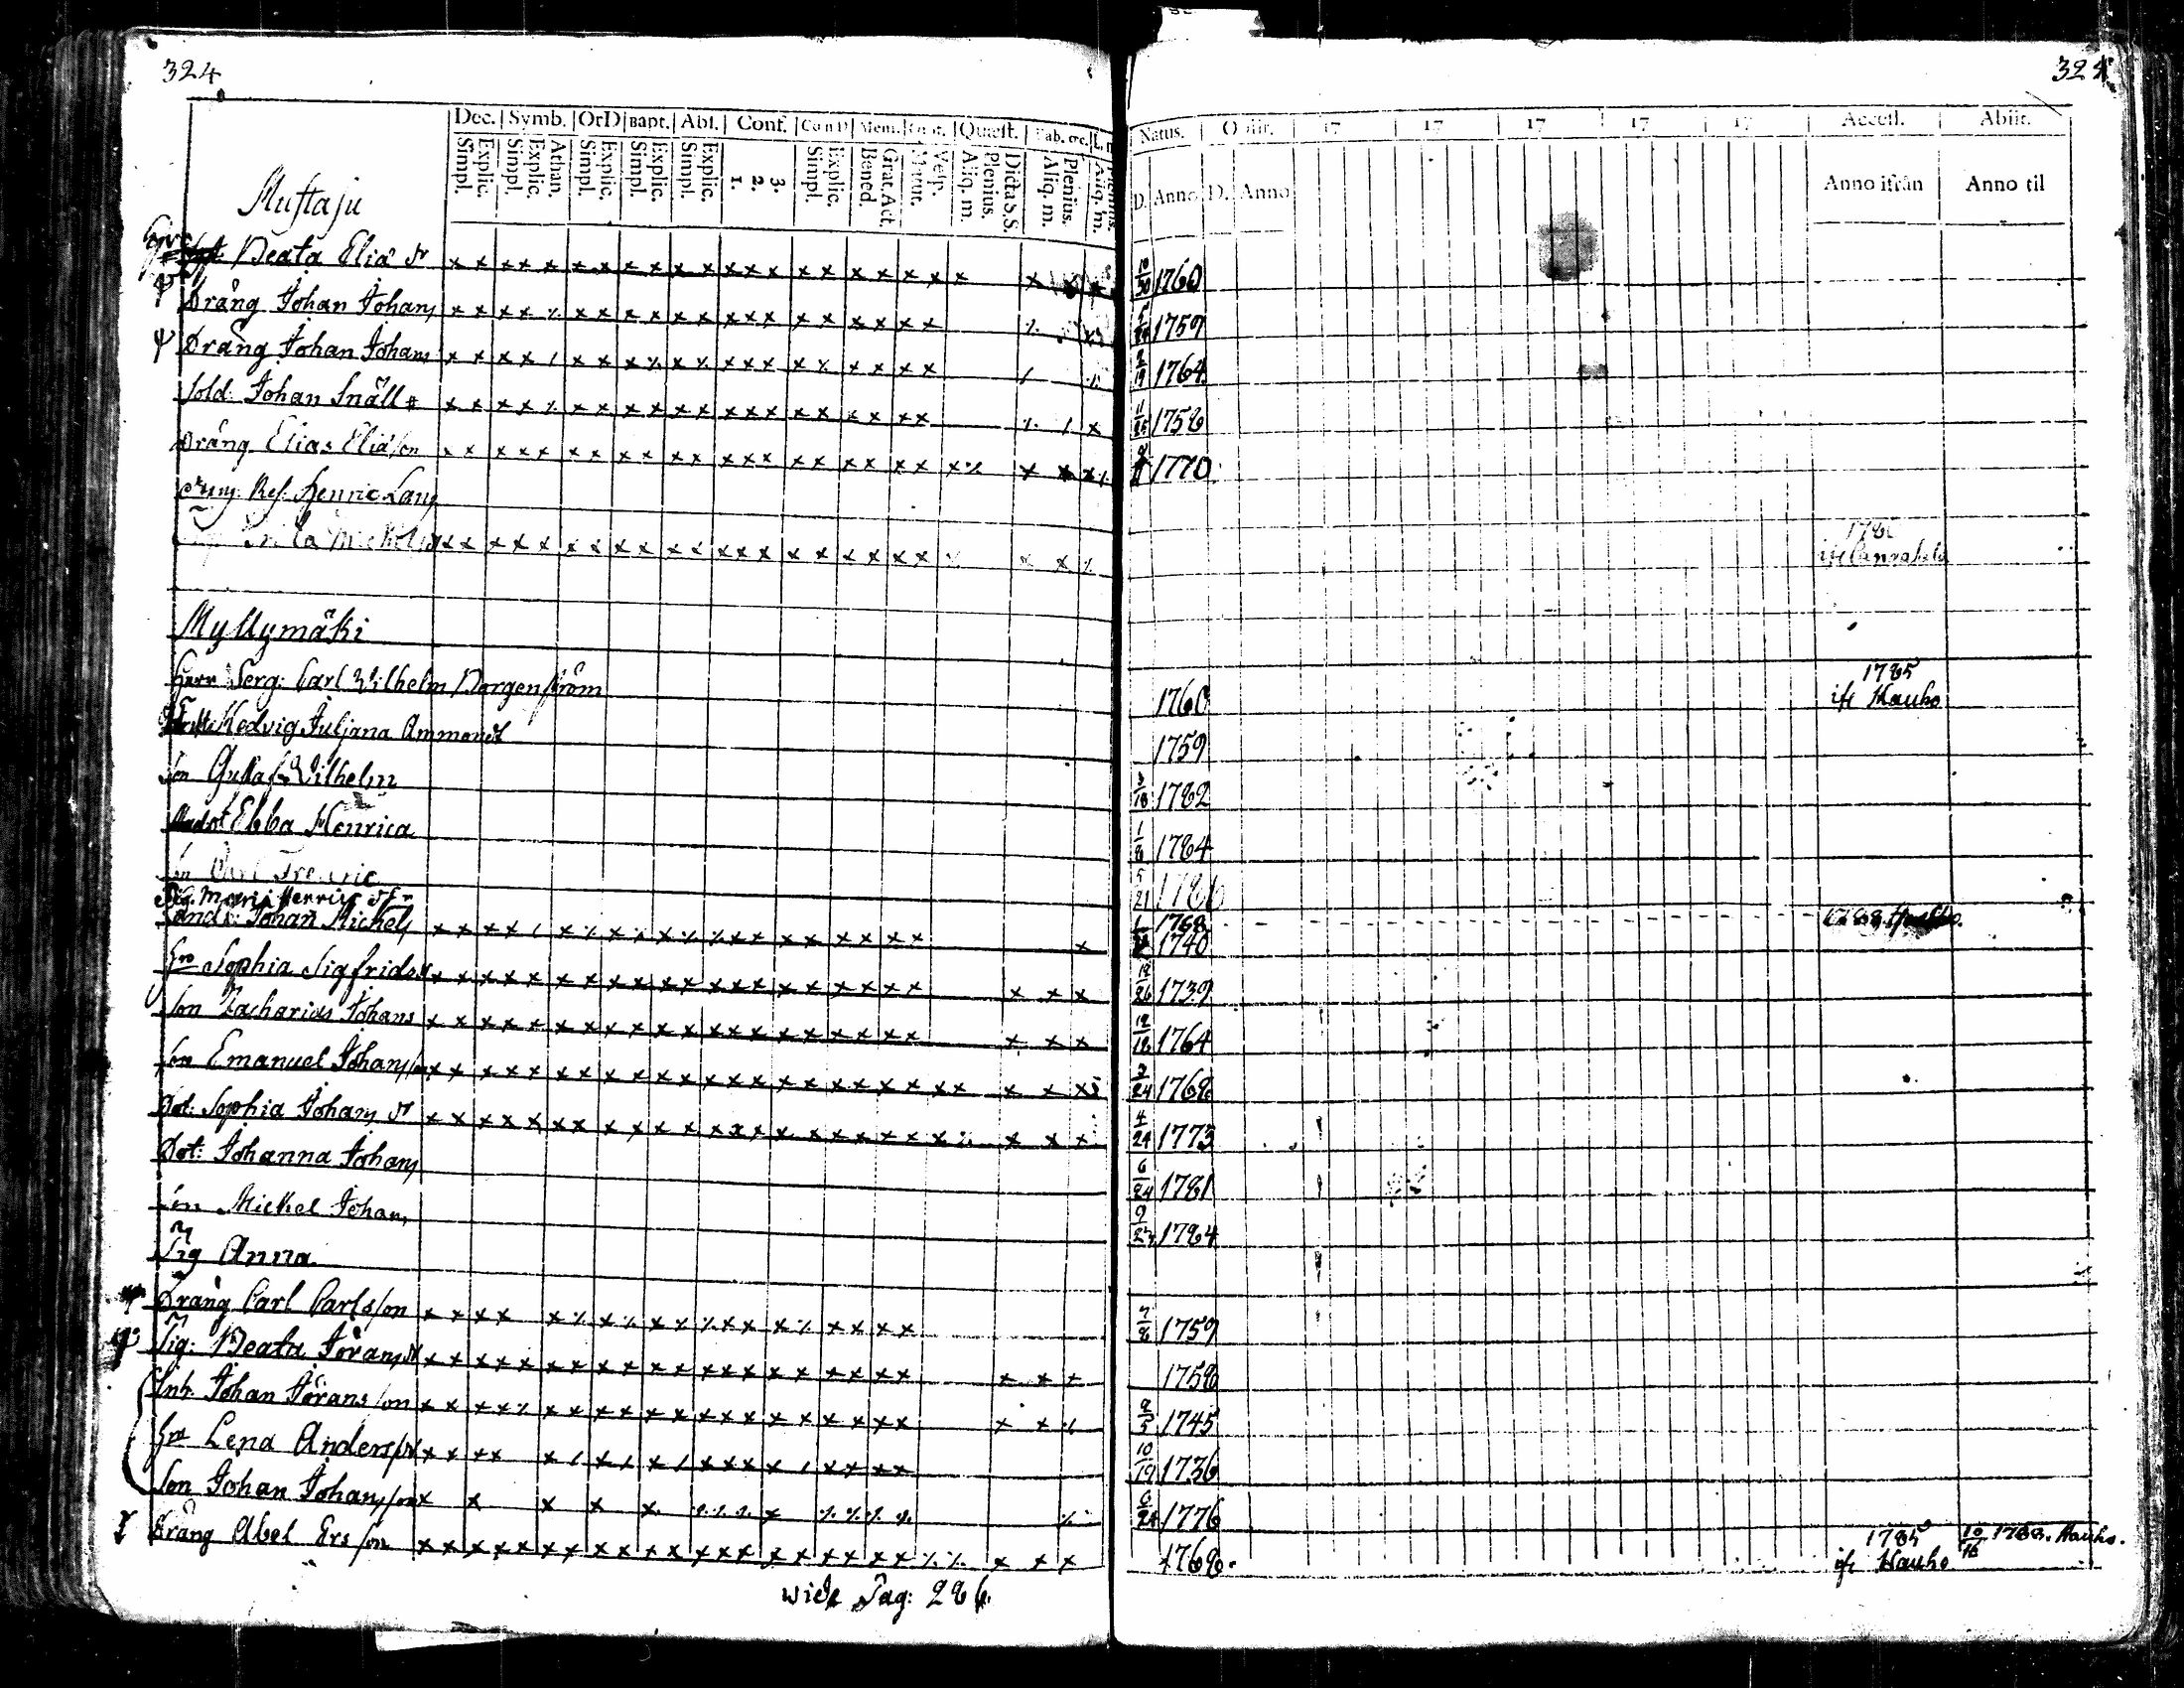 324 324
Dec. Symb. OrD Bapt. Abs. Conf. Mem. Quæst. Natus. Obiit. 17 17 17 17 17 Access. Abiit.
Simpl. Explic. Simpl. Explic. Athan. Simpl. Explic. Simpl. Explic. Simpl. Explic. 1. 2. 3. Simpl. Explic. Bened. Grat. Act. Matut. Vesp. Aliq. m. Plenius. Dicta S.S. Aliq. m. Plenius. Aliq. m. D. Anno D. Anno Anno ifrån Anno til
Mustaju
Beata Eliæ dr 10/30 1760
Dräng Johan Johans 1759
Dräng Johan Johans 2/19 1764
Sold. Johan Snäll 1758
Dräng Elias Eliæson 1770
Res. Henric Lang
178
Myllymäki
Herr Serg: Carl Wilhelm Morgenström 1760 1785 ifr Hauho
Hedvig Juljana Ammondt 1759
Son Gustaf Wilhelm 3/18 1782
Ebba Henrica 1/8 1784
Son Carl Fredric 5/21 1786
Maria Henrics dr 1768
Johan Michels 1740
Hru Sophia Sigfrids dr 12/26 1739
Son Zacharias Johans 12/18 1764
Son Emanuel Johansson 3/24 1768
Dot: Sophia Johans dr 4/24 1773
Dot: Johanna Johans 6/24 1781
Son Mickel Johans 9/27 1784
Pig Anna
Dräng Carl Carlsson 7/8 1759
Pig: Beata Jörans dr 1758
Inh. Johan Jöransson 2/5 1745
Hru Lena Anders dr 10/19 1736
Son Johan Johansson 6/24 1776
Dräng Abel Ersson 1768. 1785 ifr Hauho 10/16 1788. Hauho.
wide Pag: 286.